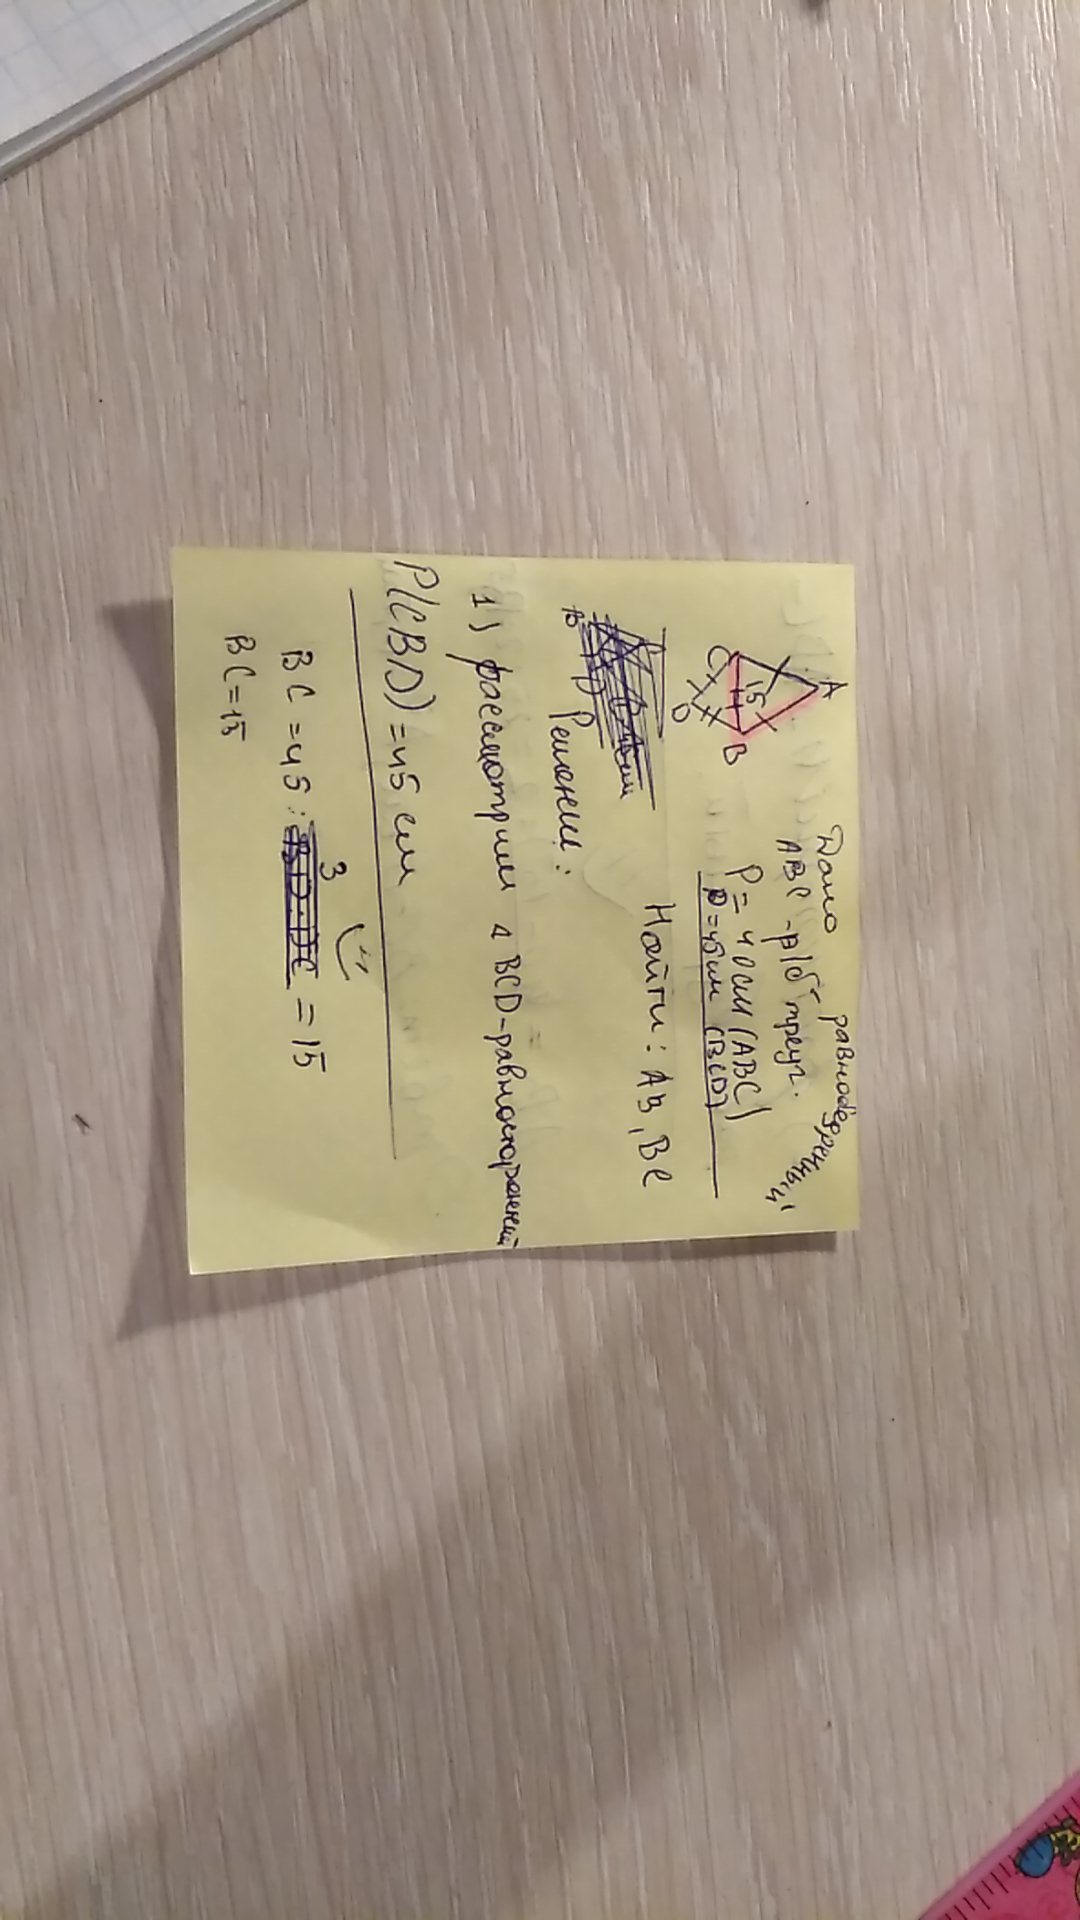 Дано равнобедренный
ABC - р/б треуг.
P = 40см (ABC)
P = 45см (BCD)
A
C
15
B
D
Найти: AB, BC
Решение:
1) рассмотрим △ BCD-равносторонний
P(CBD) = 45 см
BC = 45 : 3 = 15
BC = 15